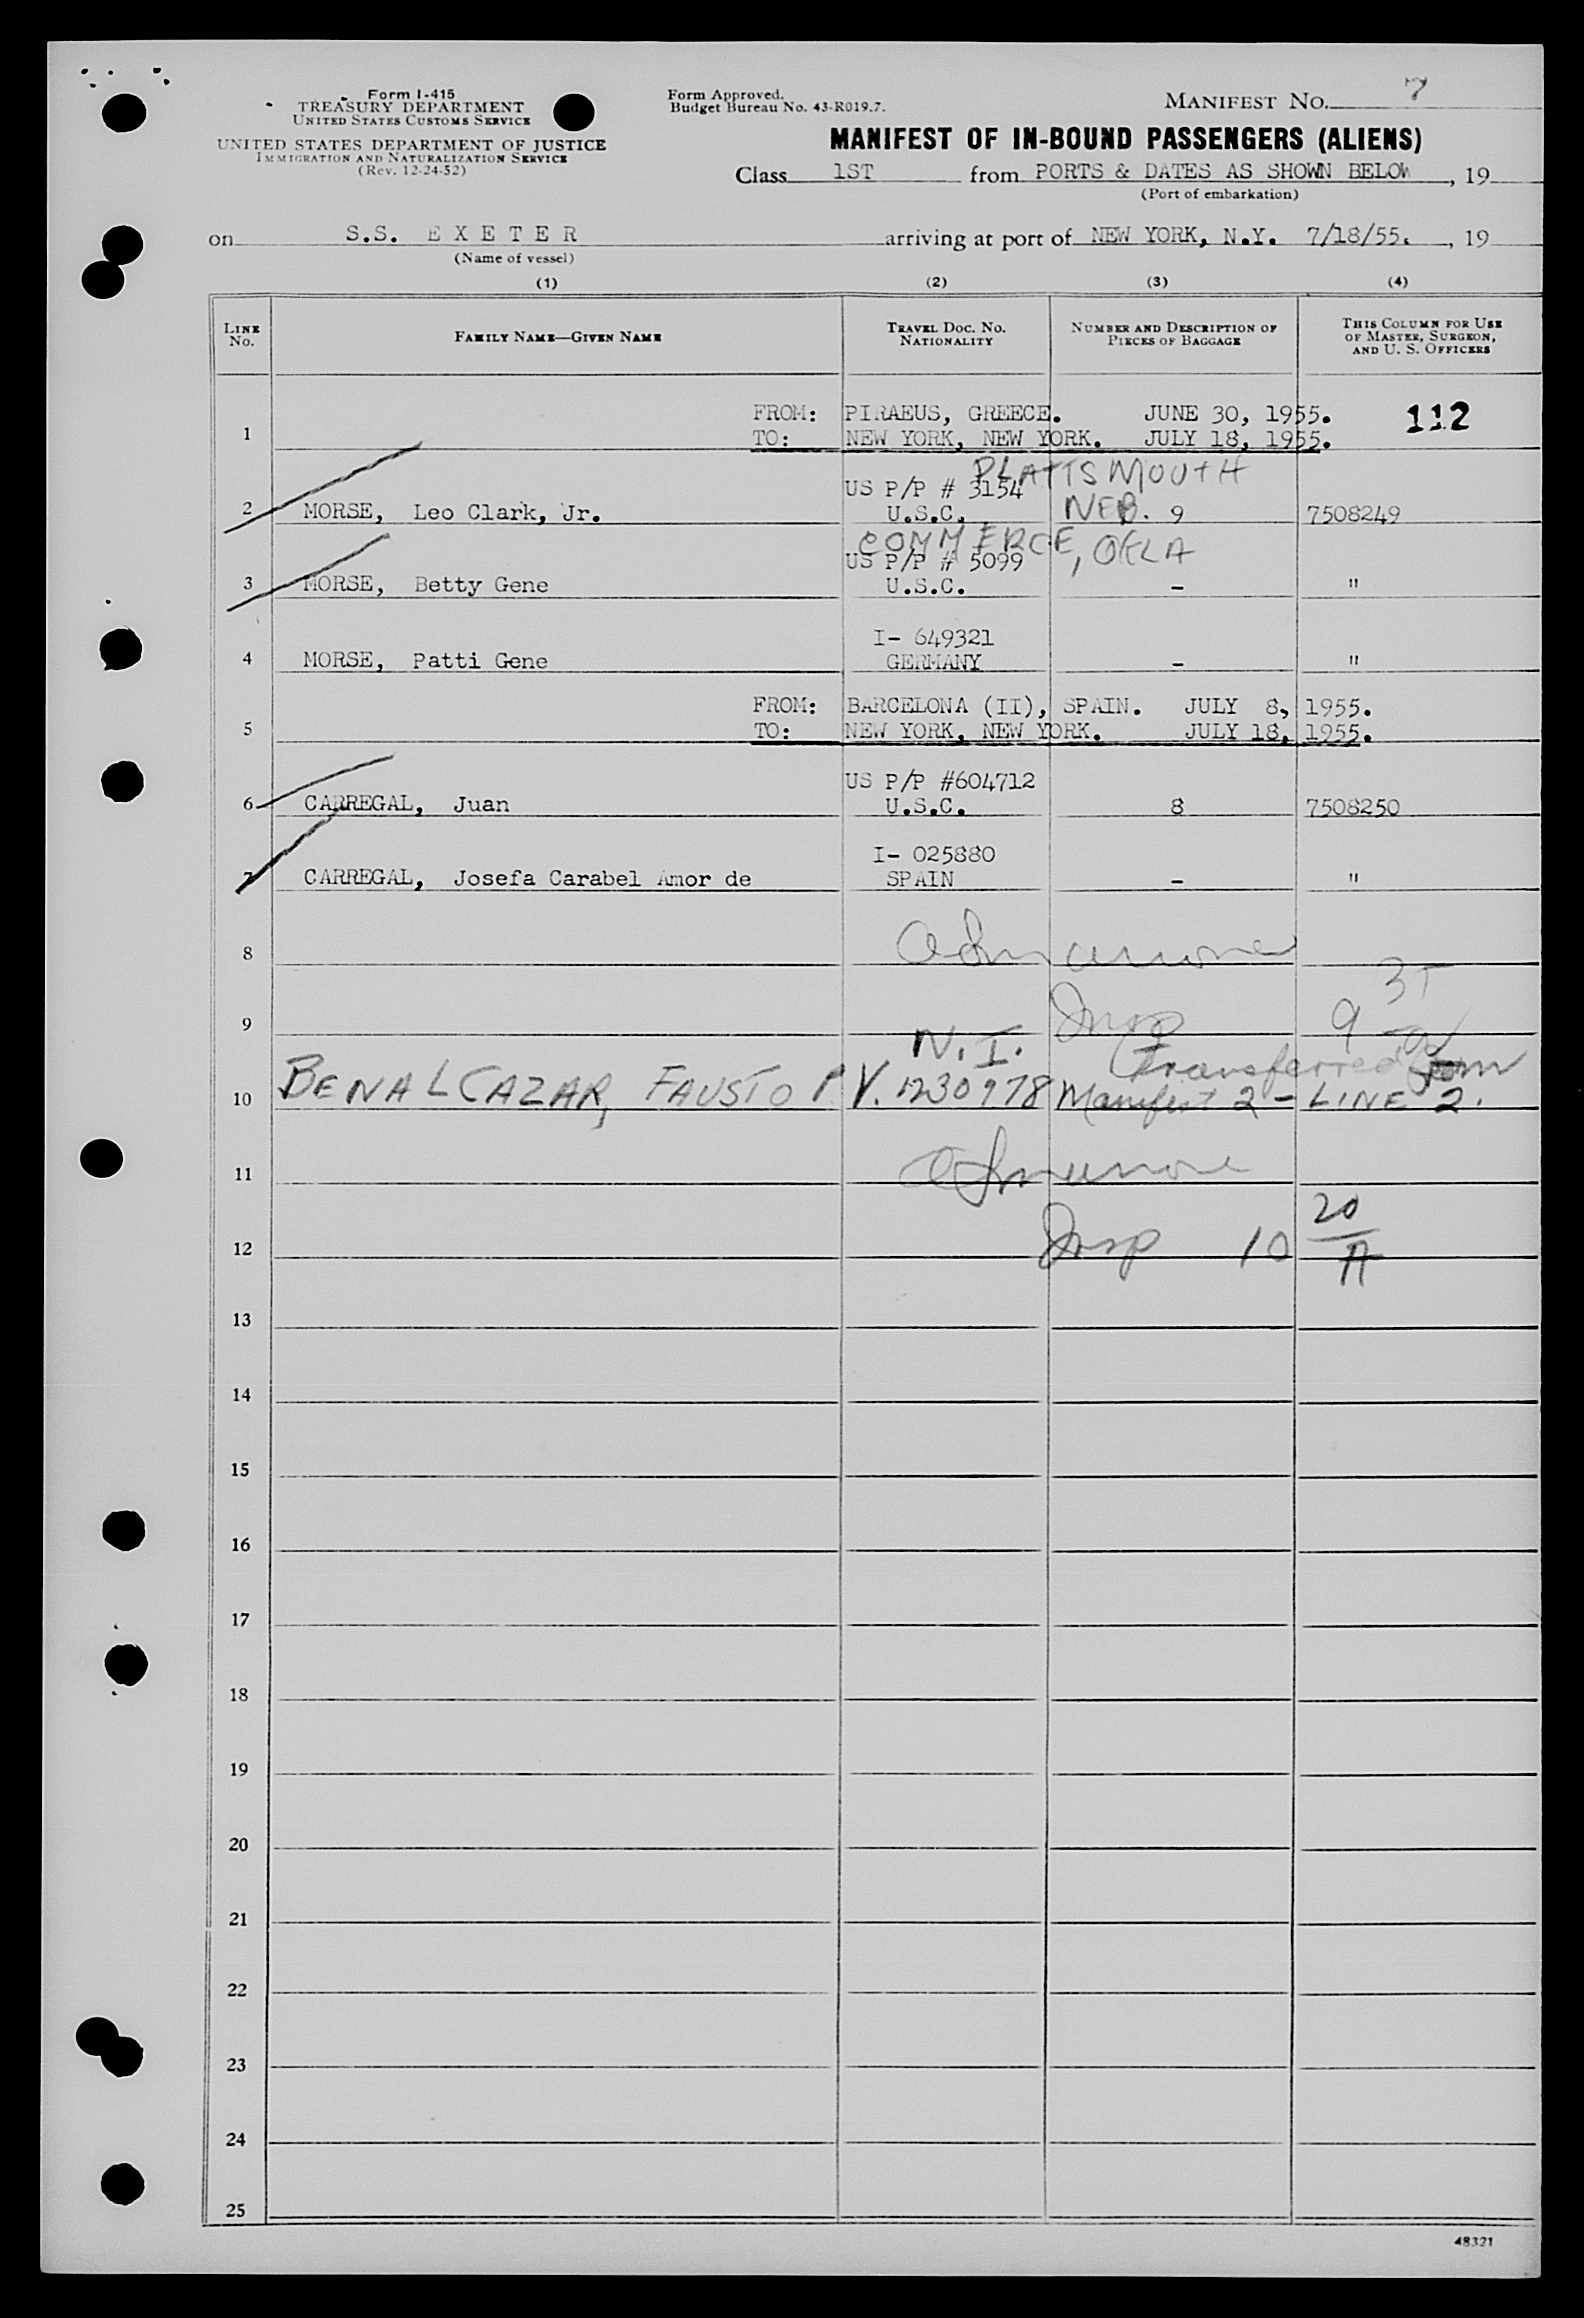 Form I-415
TREASURY DEPARTMENT
UNITED STATES CUSTOMS SERVICE
UNITED STATES DEPARTMENT OF JUSTICE
IMMIGRATION AND NATURALIZATION SERVICE
(Rev. 12-24-52)
Form Approved.
Budget Bureau No. 43-R019.7.
MANIFEST NO. 7
MANIFEST OF IN-BOUND PASSENGERS (ALIENS)
Class 1ST from PORTS & DATES AS SHOWN BELOW, 19
(Port of embarkation)
on S.S. EXETER arriving at port of NEW YORK, N.Y. 7/18/55., 19
(Name of vessel)
(1) (2) (3) (4)
LINE NO. FAMILY NAME—GIVEN NAME TRAVEL DOC. NO. NATIONALITY NUMBER AND DESCRIPTION OF PIECES OF BAGGAGE THIS COLUMN FOR USE OF MASTER, SURGEON, AND U. S. OFFICERS
FROM: PIRAEUS, GREECE. JUNE 30, 1955. 112
1 TO: NEW YORK, NEW YORK. JULY 18, 1955.
PLATTSMOUTH
US P/P # 3154
2 MORSE, Leo Clark, Jr. U.S.C. NEB. 9 7508249
COMMERCE, OKLA
US P/P # 5099
3 MORSE, Betty Gene U.S.C. - "
I- 649321
4 MORSE, Patti Gene GERMANY - "
FROM: BARCELONA (II), SPAIN. JULY 8, 1955.
5 TO: NEW YORK, NEW YORK. JULY 18, 1955.
US P/P #604712
6 CARREGAL, Juan U.S.C. 8 7508250
I- 025880
7 CARREGAL, Josefa Carabel Amor de SPAIN - "
8
9 Insp 9 35
N.I. Transferred from
10 BENALCAZAR, FAUSTO P. V. 1230978 Manifest 2 - LINE 2.
11
12 Insp 10 20/A
13
14
15
16
17
18
19
20
21
22
23
24
25
48321